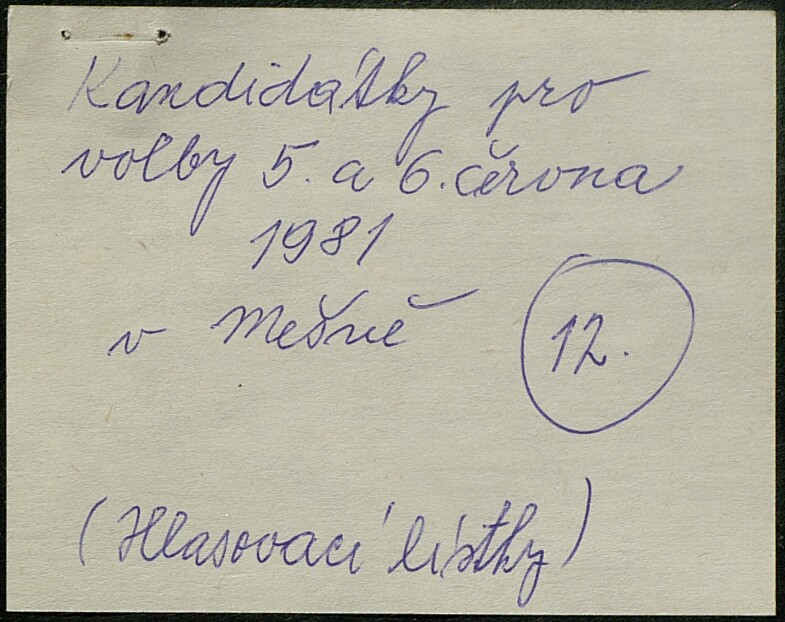 Kandidátky pro
volby 5. a 6. června
1981
v Mešně
12.
(Hlasovací lístky)